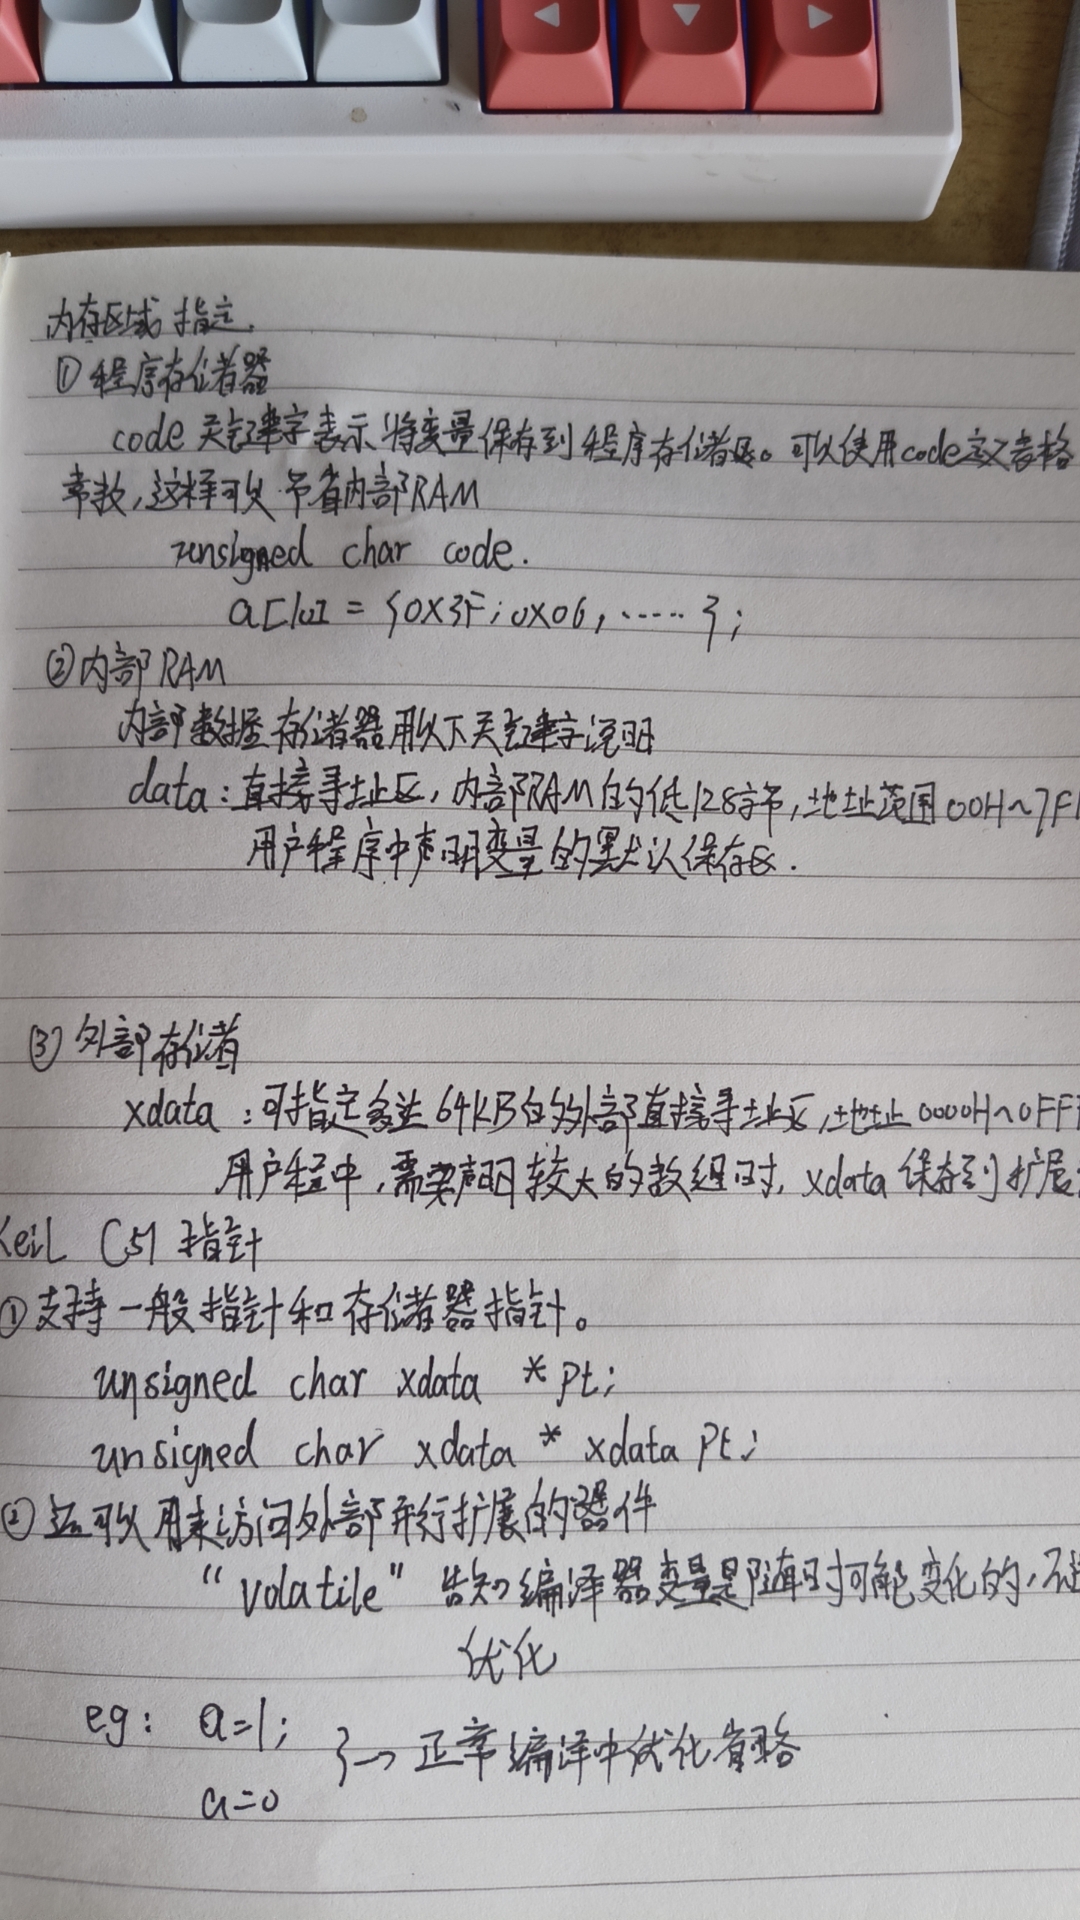 内存区域指定.
①程序存储器
code 关键字表示将变量保存到程序存储区。可以使用code定义表格
常数,这样可以节省内部RAM
unsigned char code.
a[10] = {0X3F; 0X06, ……};
②内部RAM
内部数据存储器用以下关键字说明
data:直接寻址区,内部RAM的低128字节,地址范围00H~7F
用户程序中声明变量的默认保存区.
③外部存储
xdata:可指定多达64KB的外部直接寻址区,地址0000H~0FF
用户程中,需要声明较大的数组时,xdata保存到扩展
Keil C51 指针
①支持一般指针和存储器指针。
unsigned char xdata *pt;
unsigned char xdata * xdata pt;
②还可以用来访问外部并行扩展的器件
“volatile”告知编译器变量是随时可能变化的,不
优化
eg: a=1; }→正常编译中优化省略
a=0